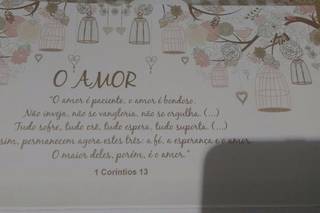 O AMOR
"O amor é paciente, o amor é bondoso.
Não inveja, não se vangloria, não se orgulha. (...)
Tudo sofre, tudo crê, tudo espera, tudo suporta. (...)
sim, permanecem agora estes três: a fé, a esperança e o amor.
O maior deles, porém, é o amor."
1 Coríntios 13